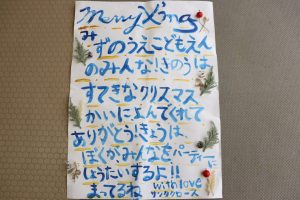 Merry X'mas
みずのうえこどもえん
のみんな!きのうは
すてきなクリスマス
かいによんでくれて
ありがとう!きょうは
ぼくがみんなをパーティーに
しょうたいするよ!!
まってるね with love
サンタクロース